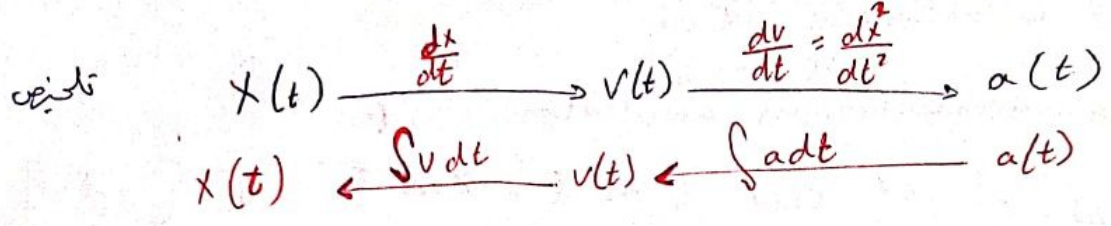 تلخيص X(t) —dx/dt→ v(t) —dv/dt = dx²/dt²→ a(t)
x(t) ←∫v dt— v(t) ←∫a dt— a(t)